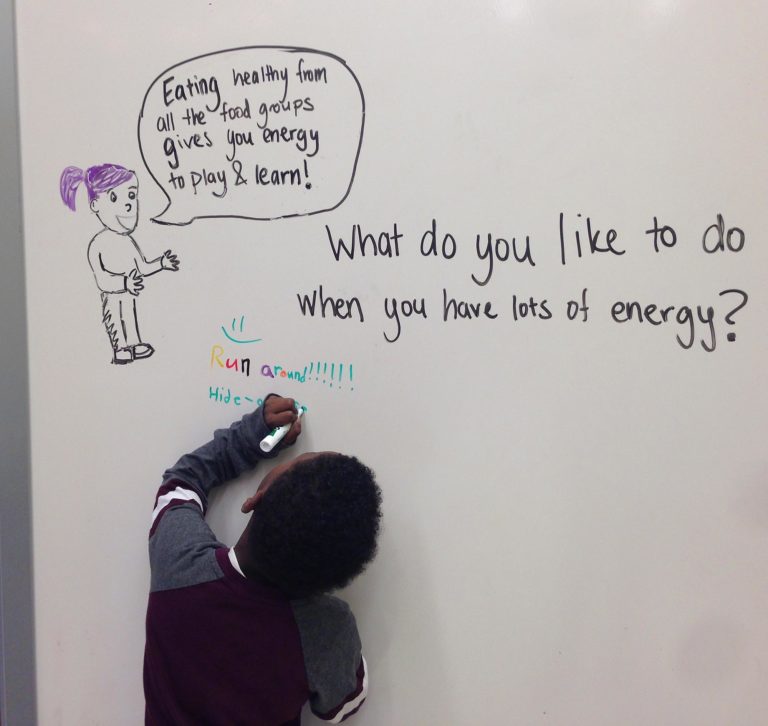 Eating healthy from
all the food groups
gives you energy
to play & learn!
What do you like to do
when you have lots of energy?
Run around!!!!!!
Hide-